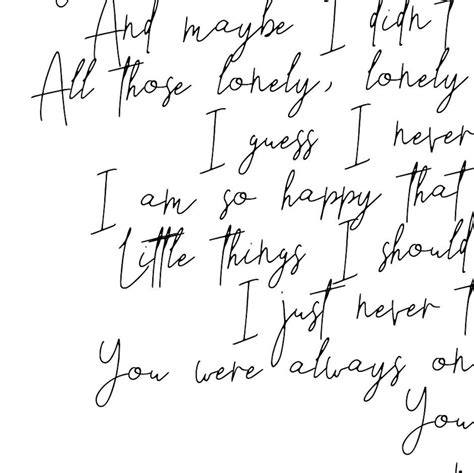 And maybe I didn't
All those lonely, lonely
I guess I never
I am so happy that
Little things I should
I just never t
You were always on
You